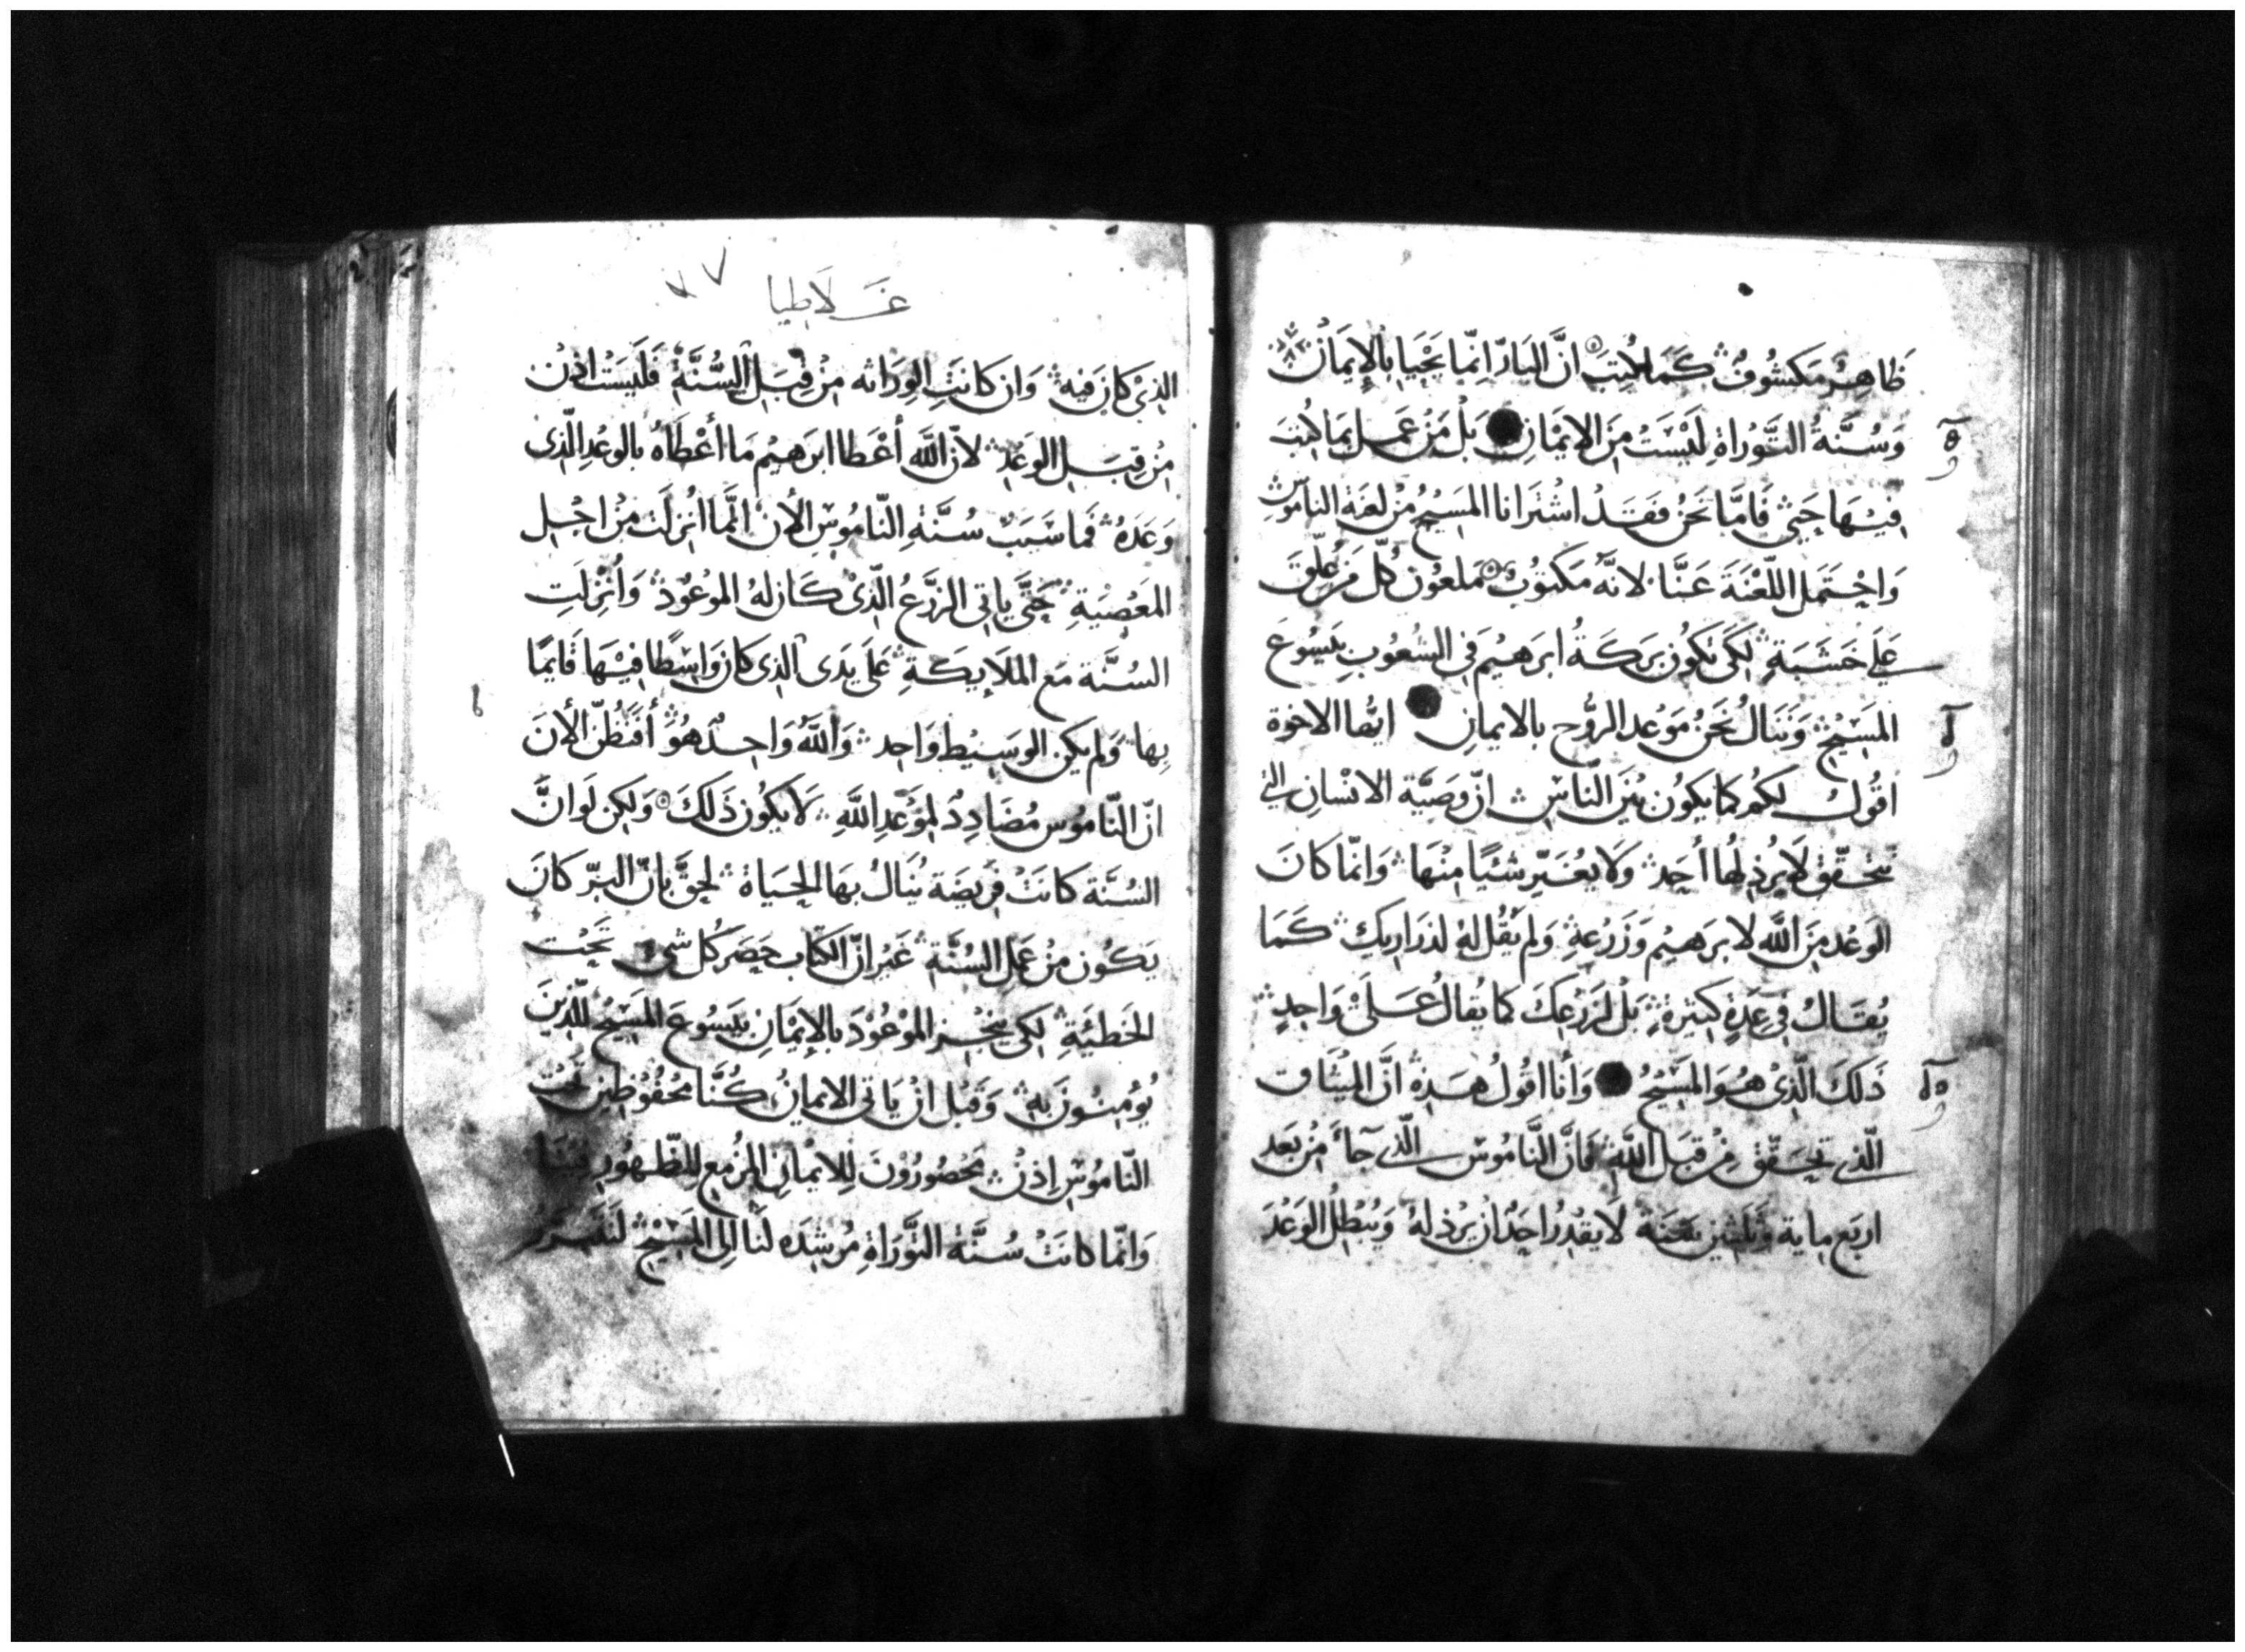 ظَاهِرٌ مَكشُوفٌ كَمَا كُتِبَ انَّ البَارّ انّما يَحْيَا بالإيمَانْ
وَسُنَّةُ التَّوْرَاةِ لَيْسَتْ مِنَ الايْمَانِ بَلْ مَنْ عَمِل بمَا كُتِبَ
فيْهَا حَيىَ فَامَّا نَحْنُ فَقَدْ اشْتَرانا المَسِيْحُ مْن لعَنَة النامُوسِ
وَاحْتَمَل اللّعْنَةَ عَنَّا لانَّه مَكتوُبٌ مَلعوُن كُلّ مَن عُلّقَ
عَلَى خَشَبَةٍ لكَى تكُون بَرَكَةُ ابرَهيْم فى الشعُوبِ بيَسُوعَ
المَسِيْحِ وَنَنَالُ نَحْنُ مَوْعِد الرُّوح بالايمانِ ايُّها الاخوة
اقُولُ لكم كما يكُون بَيْنَ النّاسِ انّ وَصيَّة الانْسانِ التى
تحَقّقْ لا يُرذِلُها أحَد وَلا يُغيّر شَيْئًا مِنْهَا وَانّما كانَ
الوَعْد مِنَ اللَّه لابرَهيْم وَزَرْعِهِ وَلم يَقُل لهُ لذرَاريكَ كَمَا
يُقَالُ فى عَدَةٍ كثيرَةٍ بَلْ لزَرْعِكَ كما يُقالُ عَلَى وَاحِدٍ
ذَلكَ الّذِىْ هُوَ المَسِيْحُ وَأنا اقُولُ هَذِهِ انَّ الميْثَاق
الّذى تحَقّقَ مِنْ قبَل اللَّهِ فَانَّ النَّامُوسَ الّذى جآءَ مِنْ بَعد
اربَع ماية وَثَلثين سَنَة لا يقْدِرُ احَدٌ ان يُرْذِلهُ وَيُبْطِلُ الوَعْدَ
غَلاطيا
٧٧
الذِىْ كانَ فيه وَان كانَتِ الورَاثه مِنْ قِبَل السُّنَّةْ فَلَيسَتْ اذنْ
مِنْ قِبَلِ الوَعْدِ لانّ اللَّه أعْطا ابرَهيْم مَا أعْطَاهُ بالوَعْدِ الّذى
وَعَدَهُ فمَا سَبَبُ سُنَّةِ النّامُوسِ الأن انَّما انْزلَتْ مِنْ اجْلِ
المعَصْيَةِ حَتَّى يَاتى الزَّرْعُ الّذِىْ كَان لهُ المَوْعُوْدُ وَأنْزِلَتِ
السُنَّة مَع المَلايكَةِ عَلَى يَدَى الذِى كانَ وَاسِطًا فيْهَا قَايمًا
بِها وَلم يكن الوسِيْط وَاحِد وَاللَّهُ وَاحِدٌ هُوَ أفتظُنّ الأنَ
انّ النّامُوس مُضَادِدٌ لمَوْعِدِ اللَّهِ لَا يكُون ذَلكَ وَلكِن لَوانَّ
السُنَّة كانَتْ فَريضَة يُنَالُ بهَا الحيَاة لحقَّ بانّ البرّ كانَ
يَكُون مِنْ عَمَلِ السُنَّةِ غَيْر انّ الكتَاب حَصَر كُل شىْ تَحْتَ
الخَطيَّةِ لكى يُنجْز المَوْعُوْدَ بالإيْمَانِ بيَسُوعَ المَسِيْحِ للّذينَ
يُوْمِنُونَ بِهِ وَقَبْل انْ يَاتى الايمانُ كُنَّا مَحْفُوْظِيْن تَحْتَ
النّامُوسِ إذنْ مَحْصُورُوْنَ لِلايْمانِ المُزْمِع لِلظّهُورِ فينَا
وَانّما كانَتْ سُنَّة التّوْرَاةِ مُرْشِدَه لنَا الى المَسِيْحِ لنَتَبَرّرَ